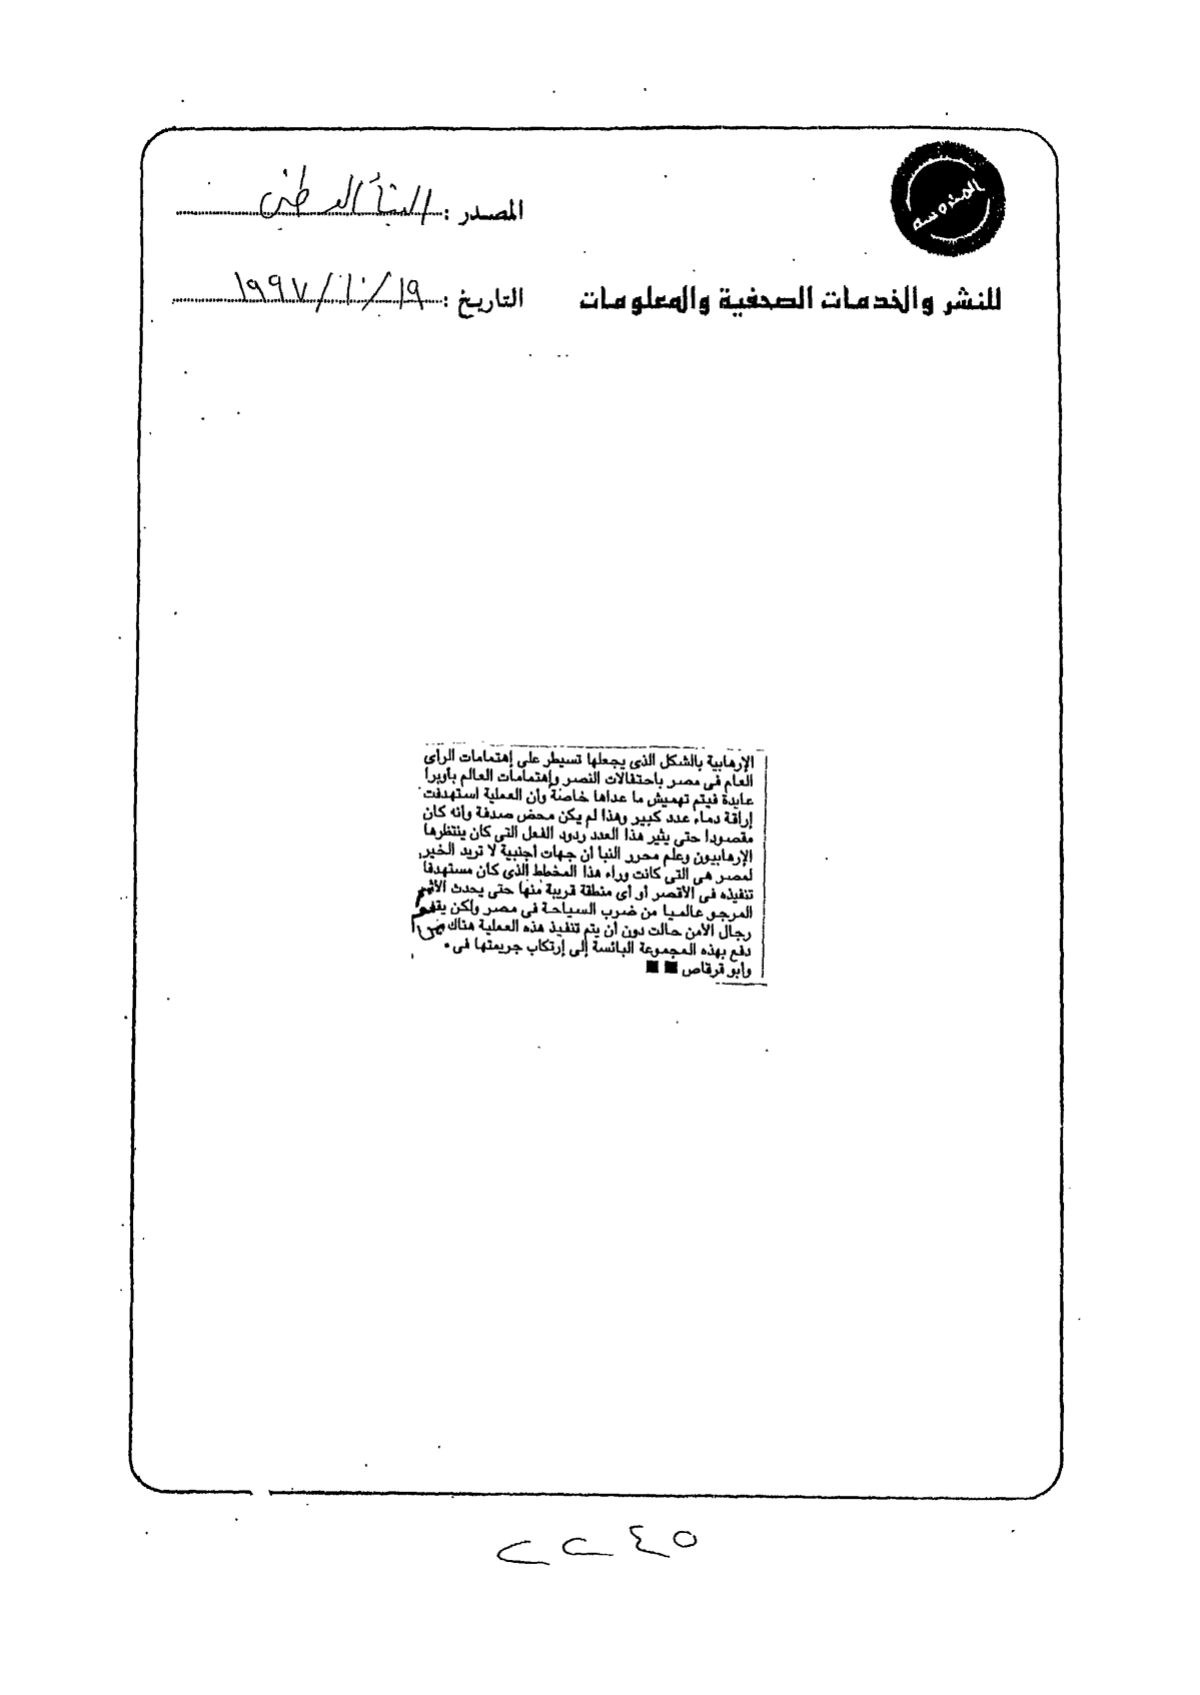 المحروسة
المصدر : النبأ الوطنى
للنشر والخدمات الصحفية والمعلومات
التاريخ : ١٩/١٠/١٩٩٧
الإرهابية بالشكل الذى يجعلها تسيطر على إهتمامات الرأى
العام فى مصر باحتفالات النصر وإهتمامات العالم بأوبرا
عايدة فيتم تهميش ما عداها خاصة وأن العملية استهدفت
إراقة دماء عدد كبير وهذا لم يكن محض صدفة وأنه كان
مقصودا حتى يثير هذا العدد ردود الفعل التى كان ينتظرها
الإرهابيون وعلم محرر النبأ أن جهات أجنبية لا تريد الخير
لمصر هى التى كانت وراء هذا المخطط الذى كان مستهدفا
تنفيذه فى الأقصر أو أى منطقة قريبة منها حتى يحدث الأثر
المرجو عالميا من ضرب السياحة فى مصر ولكن
رجال الأمن حالت دون أن يتم تنفيذ هذه العملية هناك
دفع بهذه المجموعة البائسة إلى إرتكاب جريمتها فى
وأبو قرقاص ■ ■
٢٢٤٥